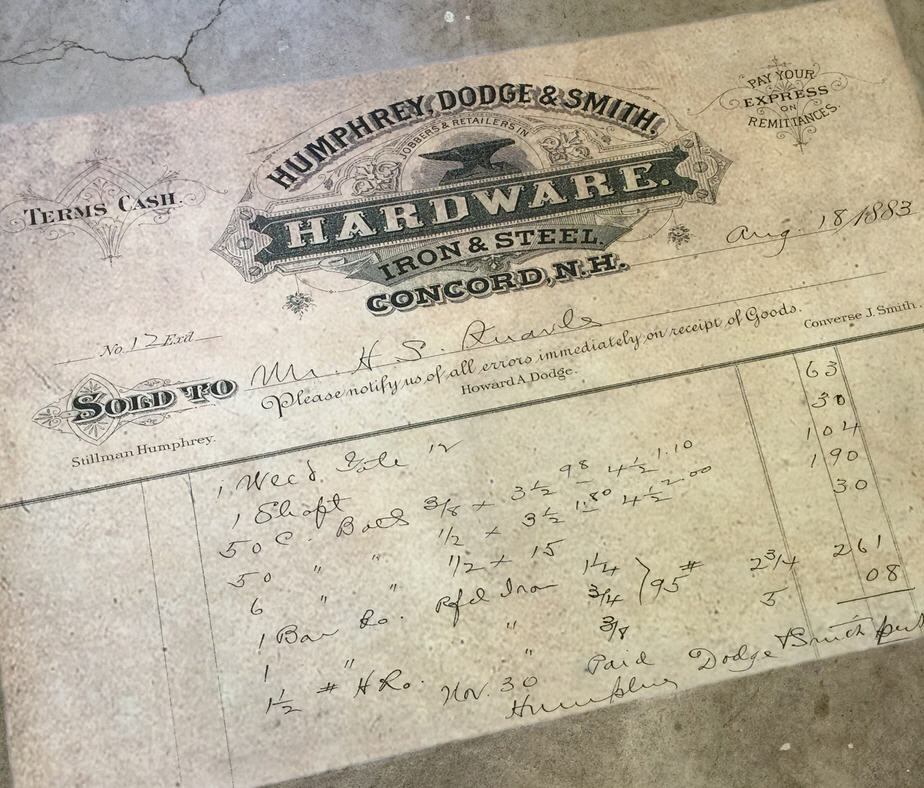 HUMPHREY, DODGE & SMITH.
JOBBERS & RETAILERS IN
HARDWARE.
IRON & STEEL.
CONCORD, N.H.
PAY YOUR
EXPRESS
ON
REMITTANCES.
TERMS CASH.
Aug. 18/1883
No. 12 Exd
SOLD TO Mr. H. S. Quarls
Please notify us of all errors immediately on receipt of Goods.
Stillman Humphrey. Howard A Dodge. Converse J. Smith.
1 12 63
1 Shaft 30
50 C. Bolts 3/8 x 3 1/2 98 4 1/2 1.10 104
50 " " 1/2 x 3 1/2 1.80 4 1/2 2.00 190
6 " " 1/2 x 15 30
1 Bar Ro. Rfd Iron 1 1/4
1 " " 3/4 } 95 # 2 3/4 261
1 1/2 # H Ro. " 3/8 5 08
Nov. 30 Paid
Humphrey Dodge & Smith